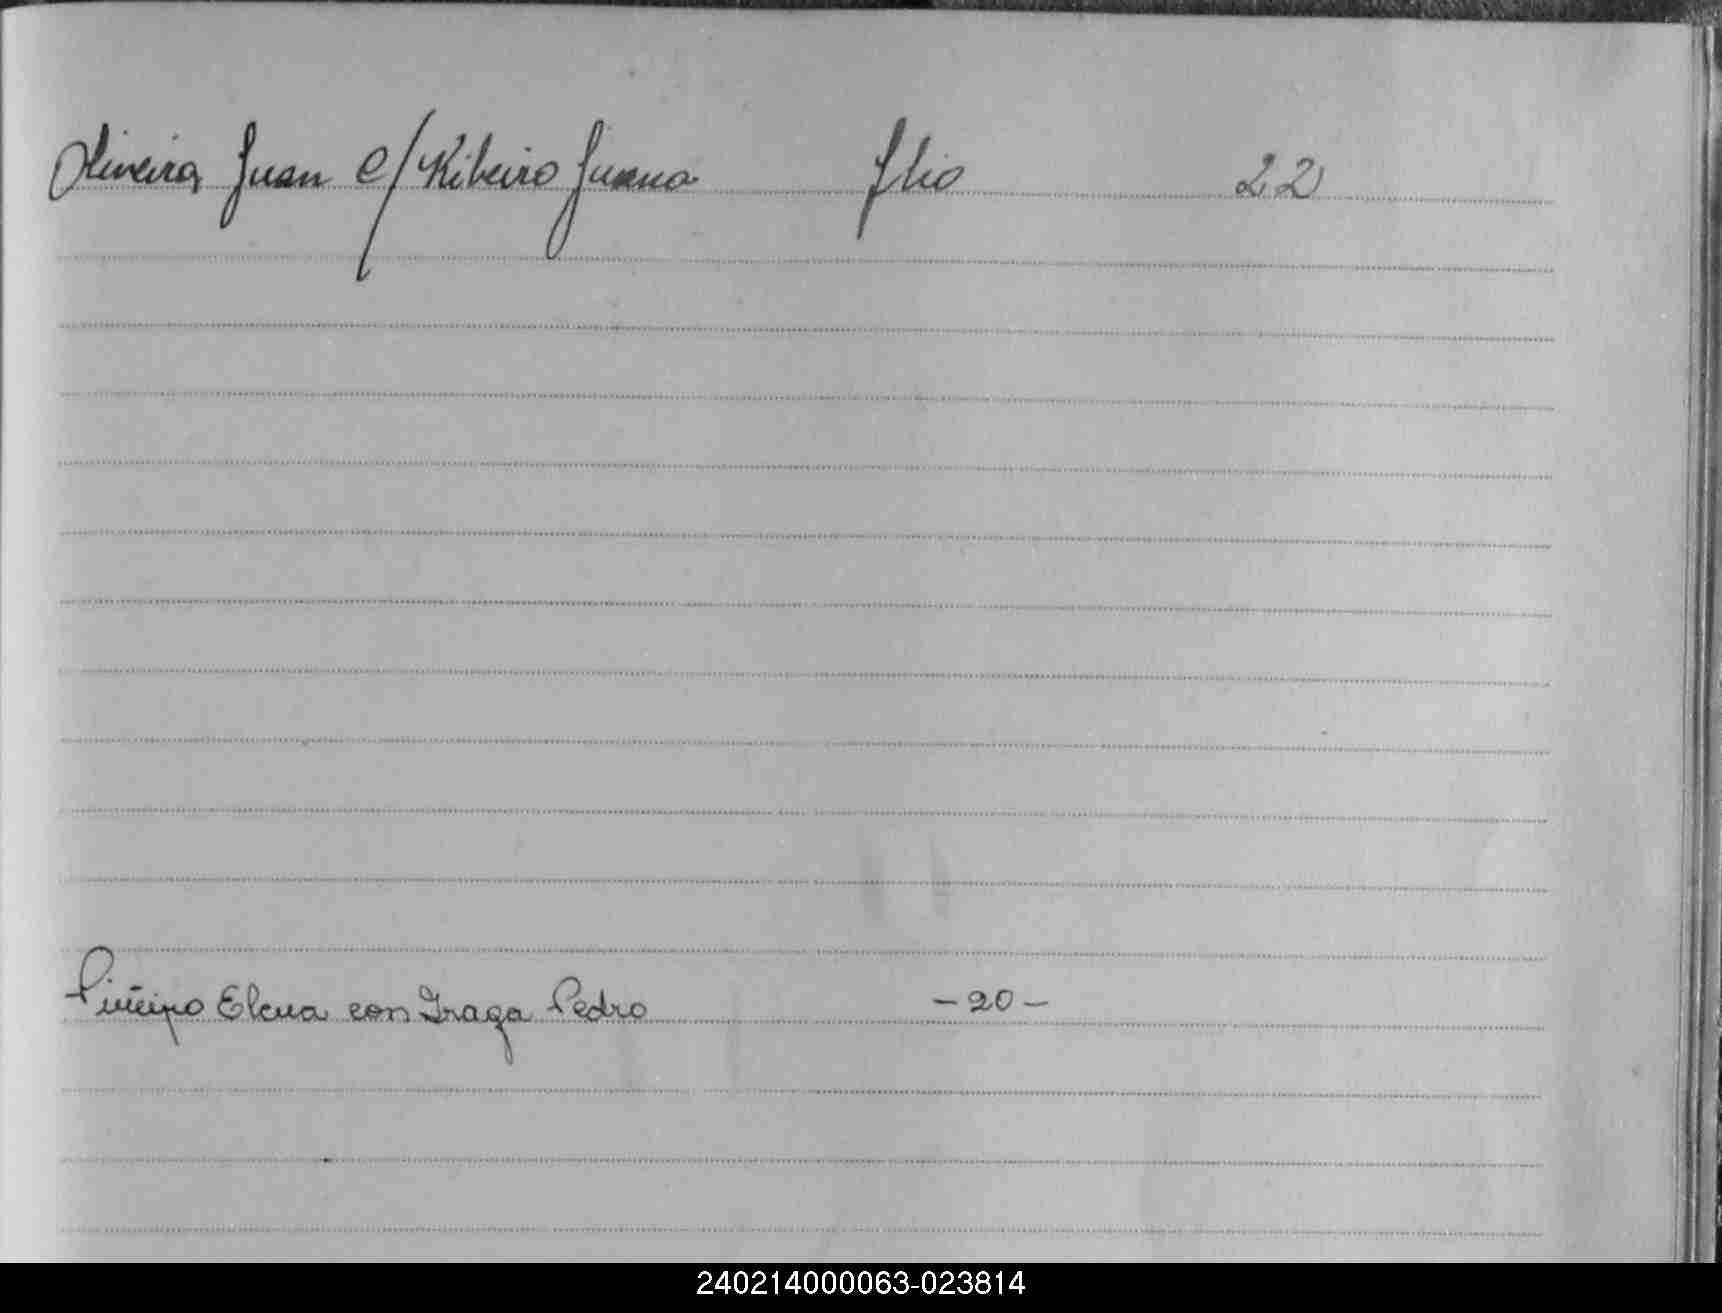 Oliveira Juan c/ Ribeiro Juana flio 22
Piñeiro Elena con Fraga Pedro -20-
240214000063-023814